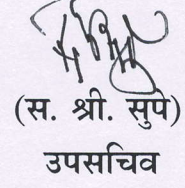 (स. श्री. सुपे)
उपसचिव